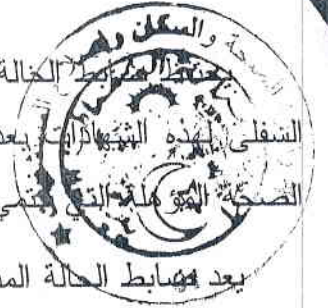 الصحة والسكان وإصلاح
يحتفظ ضابط الحالة
السفلى لهذه الشهادات بعد
الصحة المؤهلة التي ينتمي
يعد ضابط الحالة المد